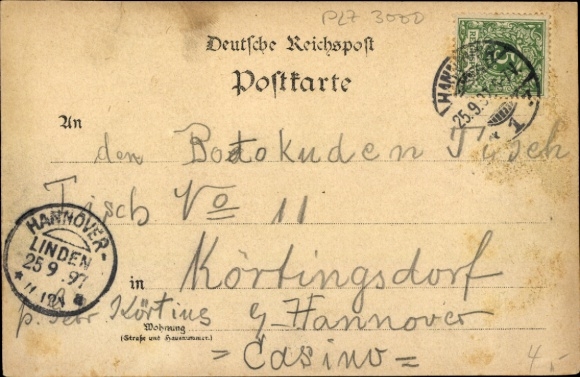 PLZ 3000
Deutsche Reichspost
Postkarte
5
HANNOVER
25.9.97
1
An
den Botokuden Tisch
Tisch No 11
HANNOVER-
LINDEN
25 9 .97
in Körtingsdorf
p. Körtius b/Hannover
Wohnung
(Straße und Hausnummer.)
= Casino =
4,-